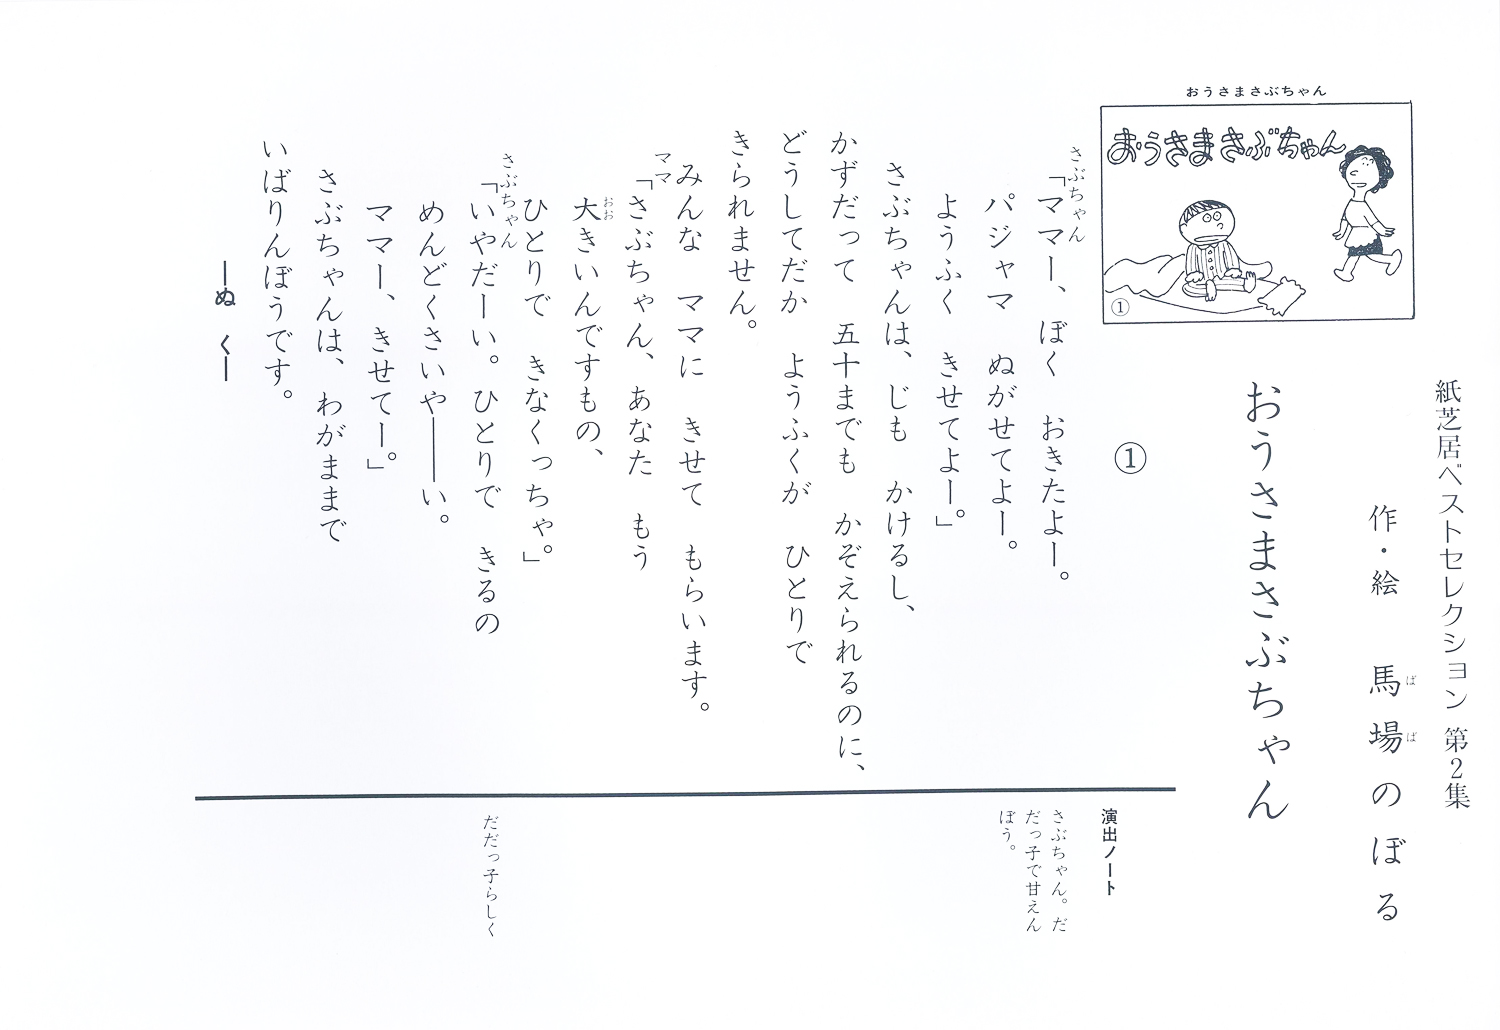 紙芝居ベストセレクション 第2集
作・絵 馬場のぼる
ばば
おうさまさぶちゃん
おうさまさぶちゃん
おうさまさぶちゃん
①
①
さぶちゃん
「ママー、ぼく おきたよー。
パジャマ ぬがせてよー。
ようふく きせてよー。」
さぶちゃんは、じも かけるし、
かずだって 五十までも かぞえられるのに、
どうしてだか ようふくが ひとりで
きられません。
みんな ママに きせて もらいます。
ママ
「さぶちゃん、あなた もう
大きいんですもの、
おお
ひとりで きなくっちゃ。」
さぶちゃん
「いやだーい。ひとりで きるの
めんどくさいや――い。
ママー、きせてー。」
さぶちゃんは、わがままで
いばりんぼうです。
―ぬ く―
演出ノート
さぶちゃん。だ
だっ子で甘えん
ぼう。
だだっ子らしく